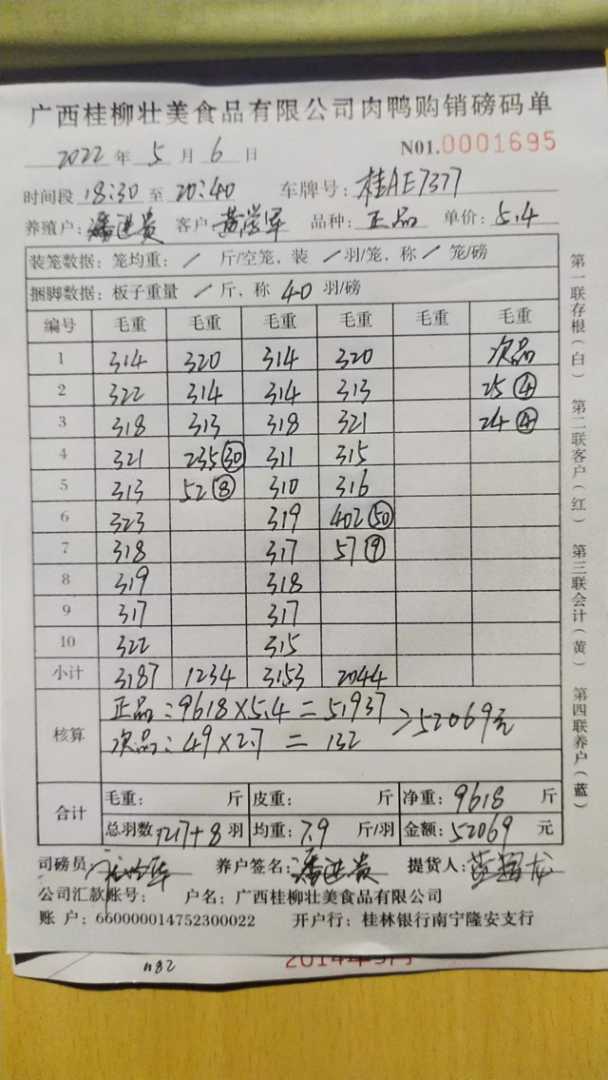 广西桂柳壮美食品有限公司肉鸭购销磅码单
2022 年 5 月 6 日 N01.0001695
时间段 18:30 至 20:40 车牌号: 桂AE7377
养殖户: 潘进贵 客户 品种: 正品 单价: 5.4
装笼数据: 笼均重: / 斤/空笼, 装 / 羽/笼, 称 / 笼/磅
捆脚数据: 板子重量 / 斤, 称 40 羽/磅
编号 毛重 毛重 毛重 毛重 毛重 毛重
1 314 320 314 320 次品
2 322 314 314 313 25 ④
3 318 313 318 321 24 ④
4 321 235 ㉚ 311 315
5 313 52 ⑧ 310 316
6 323 319 402 ㊿
7 318 317 57 ⑨
8 319 318
9 317 317
10 322 315
小计 3187 1234 3153 2044
核算 正品: 9618×5.4=51937 >52069元
次品: 49×2.7=132
合计 毛重: 斤 皮重: 斤 净重: 9618 斤
总羽数 1217+8 羽 均重: 7.9 斤/羽 金额: 52069 元
司磅员: 养户签名: 潘进贵 提货人:
公司汇款账号: 户名: 广西桂柳壮美食品有限公司
账 户: 660000014752300022 开户行: 桂林银行南宁隆安支行
第一联存根(白) 第二联客户(红) 第三联会计(黄) 第四联养户(蓝)
1182